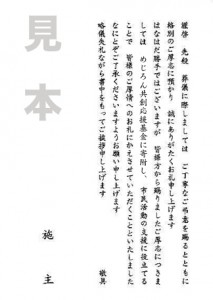 見本
謹啓 先般 葬儀に際しましては ご丁寧なご弔意を賜るとともに
格別のご厚志に預かり 誠にありがたくお礼申し上げます
はなはだ勝手ではございますが 皆様方から賜りましたご厚志につきま
しては めじろん共創応援基金に寄附し、市民活動の支援に役立てる
ことで 皆様のご厚情へのお礼にかえさせていただくことといたしました
なにとぞご了承くださいますようお願い申し上げます
略儀失礼ながら書中をもってご挨拶申し上げます
敬具
施主